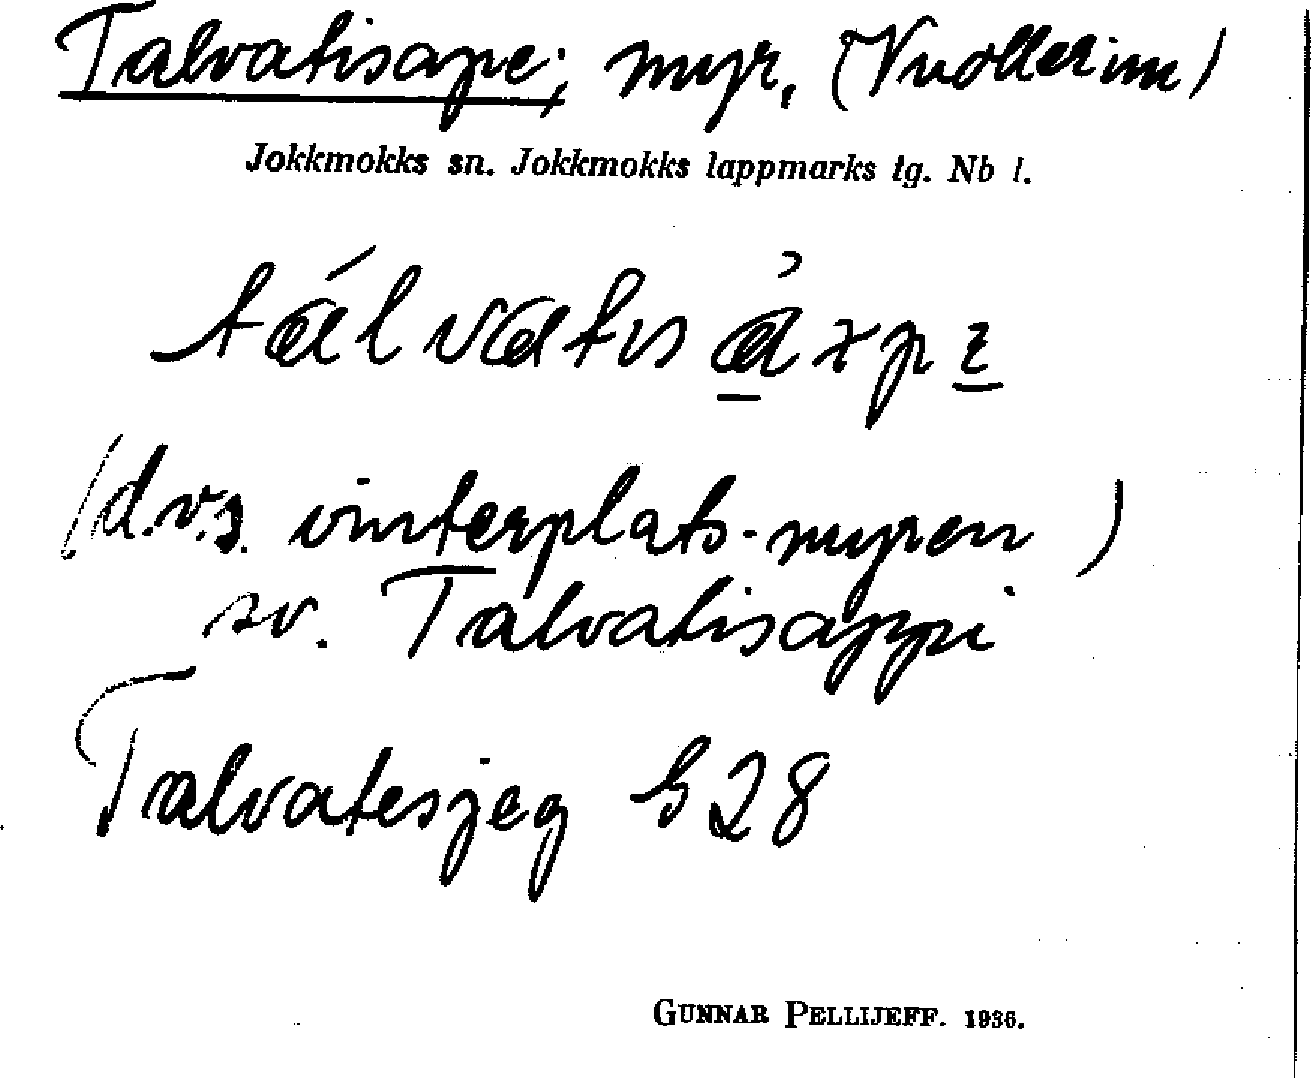 Talvatisape; myr, (Vuollerim)
Jokkmokks sn. Jokkmokks lappmarks tg. Nb l.
tálvatis
(d.v.s. vinterplats-myren)
sv. Talvatisappi
Talvatesjeg G 28
GUNNAR PELLIJEFF. 1936.